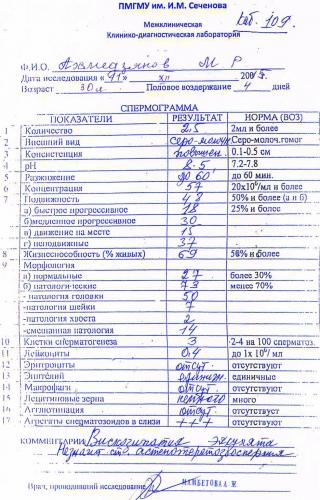 ПМГМУ им. И.М. Сеченова
Каб. 109.
Межклиническая
Клинико-диагностическая лаборатория
Ф.И.О. М Р
Дата исследования «11» XII 200
Возраст 30 л Половое воздержание 4 дней
СПЕРМОГРАММА
ПОКАЗАТЕЛИ РЕЗУЛЬТАТ НОРМА (ВОЗ)
1 Количество 2,5 2мл и более
2 Внешний вид серо-молочн Серо-молоч.гомог
3 Консистенция повышен 0.1-0.5 см
4 pH 8.5 7.2-7.8
5 Разжижение до 60' до 60 мин.
6 Концентрация 57 20x10⁶/мл и более
7 Подвижность 48 50% и более (а и б)
а) быстрое прогрессивное 18 25% и более
б)медленное прогрессивное 30
в) движение на месте 15
г) неподвижные 37
8 Жизнеспособности (% живых) 69 50% и более
9 Морфология
а) нормальные 27 более 30%
б) патологические 73 менее 70%
- патология головки 50
-патология шейки 7
- патология хвоста 2
-смешанная патология 14
10 Клетки сперматогенеза 3 2-4 на 100 сперматоз.
11 Лейкоциты 0,4 до 1х 10⁶/ мл
12 Эритроциты отсут отсутствуют
13 Эпителий единичн. единичные
14 Макрофаги отсут отсутствуют
15 Лецитиновые зерна немного много
16 Агглютинация отсут отсутствует
17 Агрегаты сперматозоидов в слизи +++ отсутствуют
КОММЕНТАРИИ Вискозипатия эякулята
Незначит. ст. астенотератозооспермия
Врач, проводивший исследование МАМБЕТОВА Л. М.